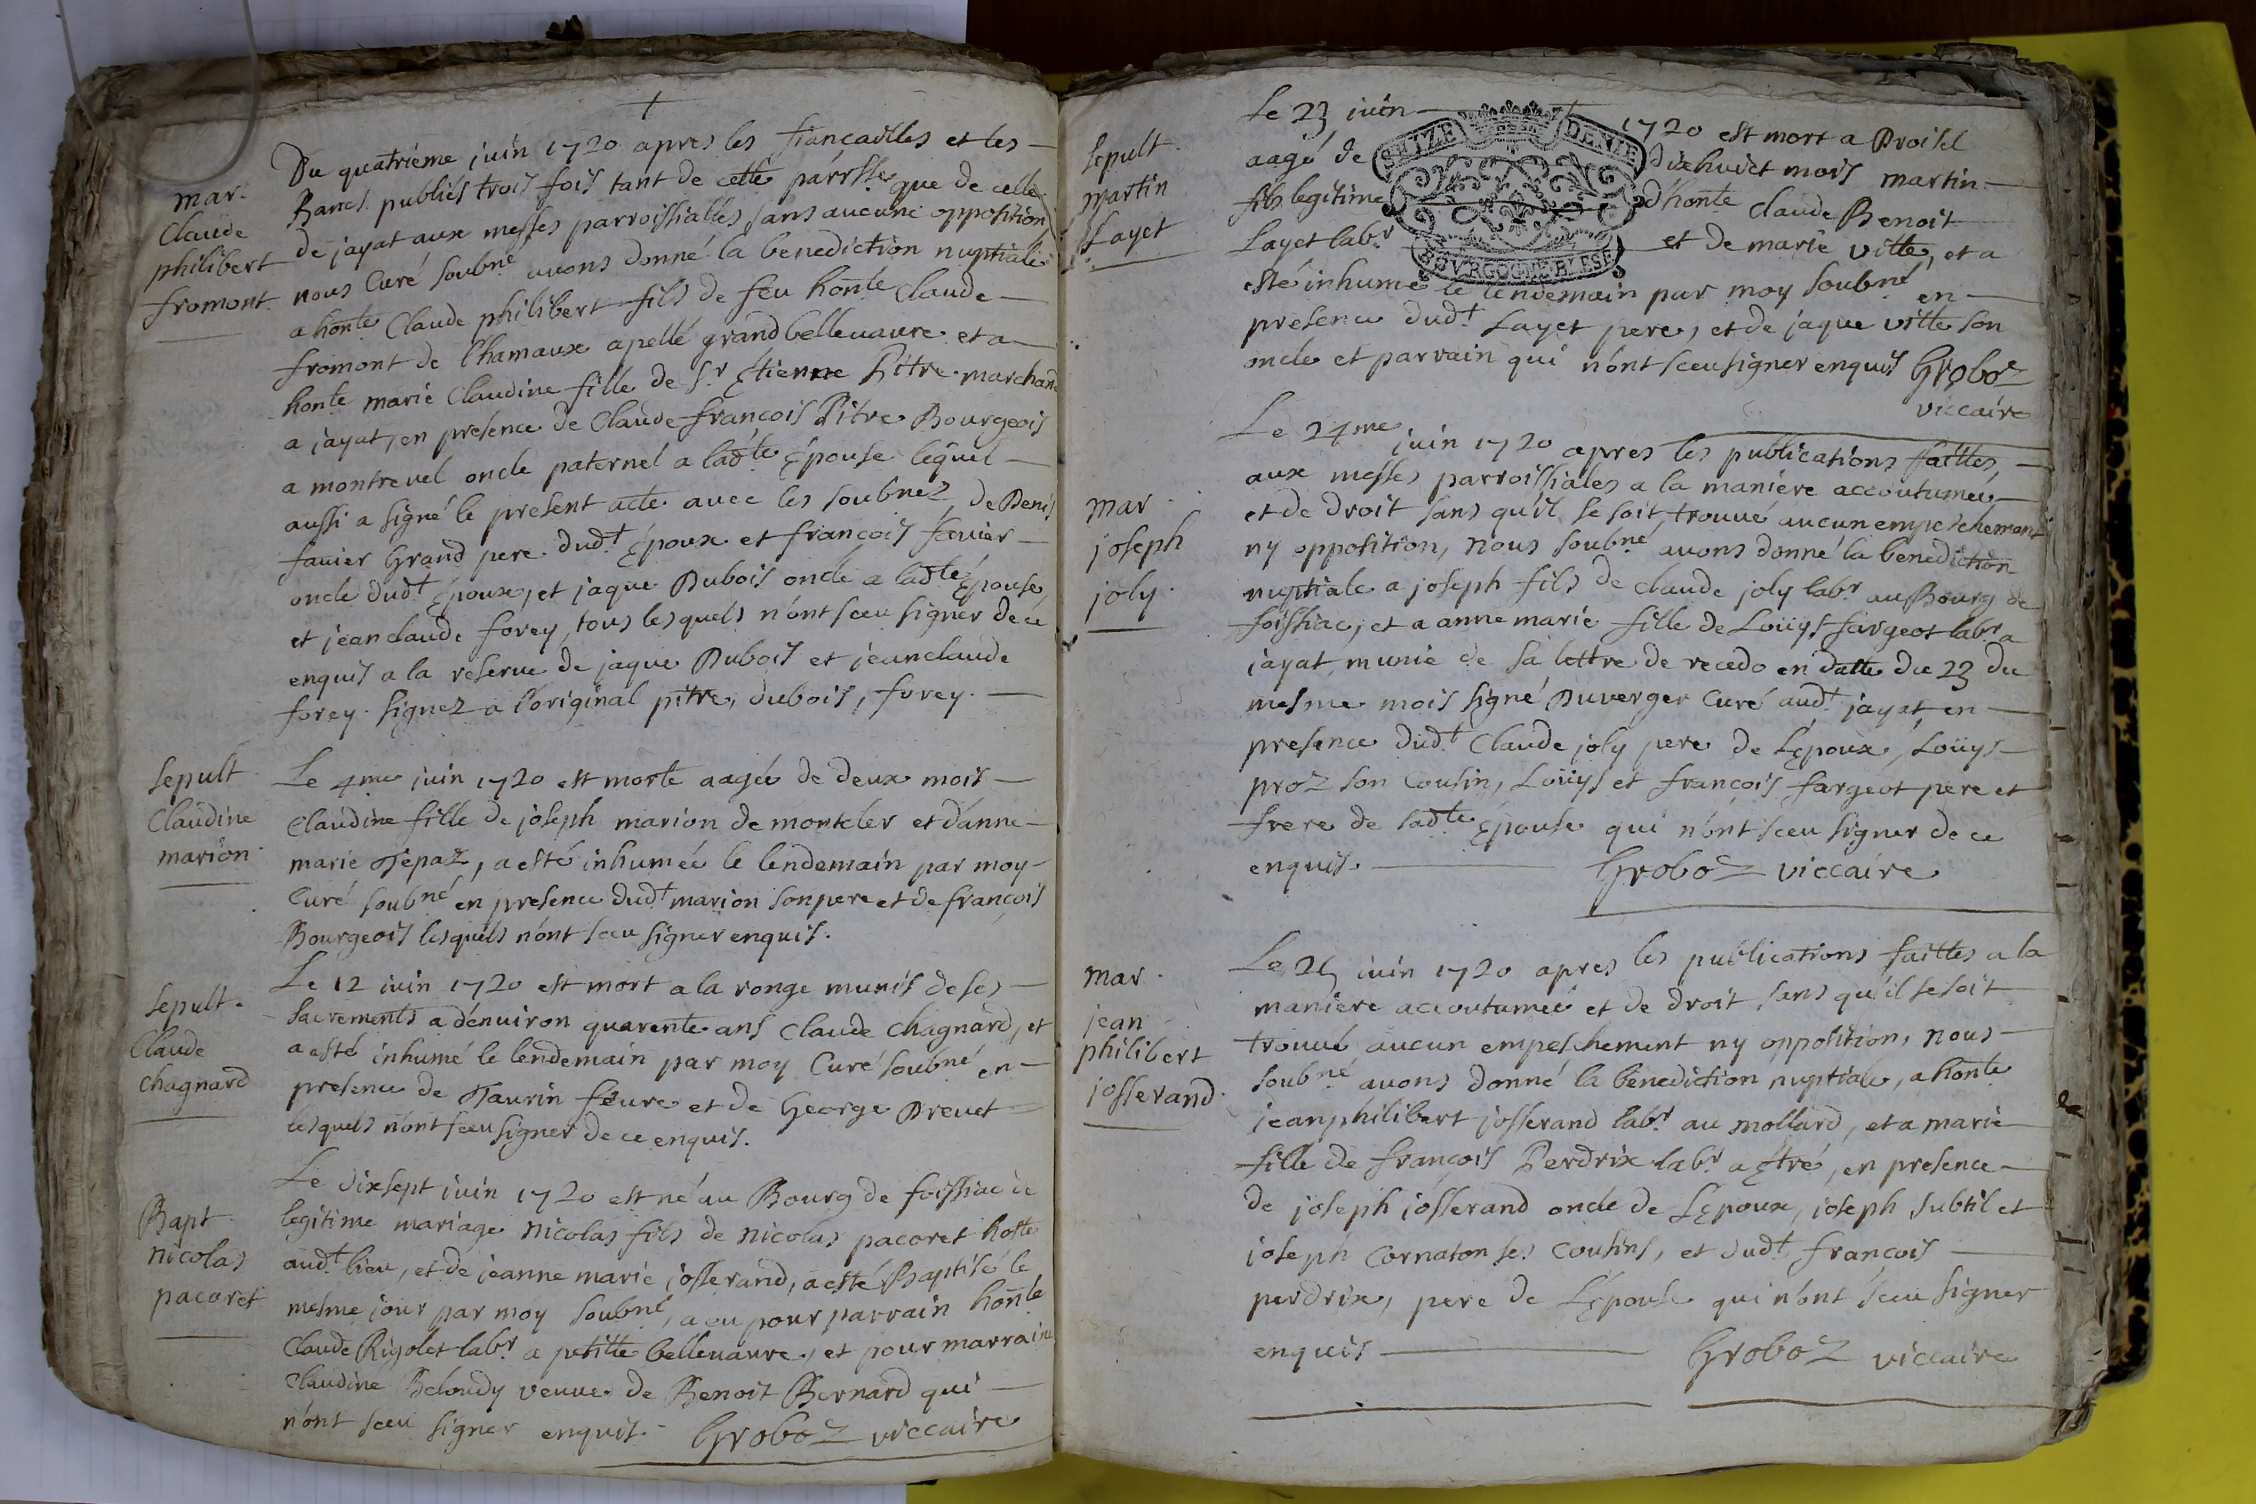 Du quatriéme juin 1720 apres les fiançailles et les
mar.
Claude
philibert
fromont.
Bancs publiés trois fois tant de cette parrsse que de celle
de jayat aux messes parroissialles sans aucune opposition
nous Curé soubné avons donné la benediction nuptiale
a honte Claude philibert fils de feu honte Claude
fromont de Chamaux apellé grand bellevavre et a
honte marie Claudine fille de Sr Étienne Pitre marchand
a jayat, en presence de Claude françois Pitre Bourgeois
a montrevel oncle paternel a ladte Épouse lequel
aussi a signé le present acte avec les soubnez, de Denis
favier Grand pere dudt Époux et françois favier
oncle dudt Époux, et jaque Dubois oncle a ladte Épouse
et jean claude forey, tous lesquels n'ont sceu signer de ce
enquis a la reserve de jaque Dubois et jeanclaude
forey. signez a l'original pitre, dubois, forey.
sepult
Claudine
marion
Le 4me juin 1720 est morte aagée de deux mois
Claudine fille de joseph marion de monteler et d'anne
marie Tépaz, a esté inhumée le lendemain par moy
Curé soubné en presence dudt marion son pere et de françois
Bourgeois lesquels n'ont sceu signer enquis.
sepult.
Claude
Chagnard
Le 12 juin 1720 est mort a la ronge munis de ses
sacrements a d'environ quarente ans Claude Chagnard, et
a esté inhumé le lendemain par moy Curé soubné en
presence de Taurin feure et de George Drevet
lesquels n'ont sceu signer de ce enquis.
Bapt
nicolas
pacoret
Le dixsept juin 1720 est né au Bourg de foissiac de
legitime mariage nicolas fils de nicolas pacoret hoste
audt lieu, et de jeanne marie josserand, a esté Baptisé le
mesme jour par moy soubné, a eu pour parrain honte
Claude Rigolet labr a petitte bellevavre, et pour marraine
Claudine Beloudy veuve de Benoit Bernard qui
n'ont sceu signer enquis. Groboz viccaire
sepult.
martin
Layet
Le 23 juin 1720 est mort a Droisel
aagé de dixhuict mois martin
fils legitime d'honte Claude Benoit
Layet labr et de marie vitte, et a
SEIZE DENIE
BOVRGOGNE BRESSE
esté inhumé le lendemain par moy soubné en
presence dudt Layet pere, et de jaque vitte son
oncle et parrain qui n'ont sceu signer enquis Groboz
viccaire
mar
joseph
joly.
Le 24me juin 1720 apres les publications faittes,
aux messes parroissiales a la maniere accoutumée
et de droit sans qu'il se soit trouvé aucun empeschement
ny opposition, nous soubné avons donné la benediction
nuptiale a joseph fils de Claude joly labr au Bourg de
foissiac, et a anne marie fille de Loüys fargeot labr a
jayat, munie de sa lettre de recedo en datte du 23 du
mesme mois signé Duverger Curé audt jayat en
presence dudt Claude joly pere de L'Époux, Loüys
proz son Cousin, Loüys et françois fargeot pere et
frere de ladte Épouse qui n'ont sceu signer de ce
enquis. Groboz viccaire
mar.
jean
philibert
josserand.
Le 25 juin 1720 apres les publications faittes a la
maniere accoutumée et de droit sans qu'il se soit
trouvé aucun empeschement ny opposition, nous
soubné avons donné la benediction nuptiale, a honte
jeanphilibert josserand labr au mollard, et a marie
fille de françois Perdrix labr a Étré, en presence
de joseph josserand oncle de L'Époux, joseph subtil et
joseph Cornaton ses Cousins, et dudt françois
perdrix, pere de L'Épouse qui n'ont sceu signer
enquis Groboz viccaire